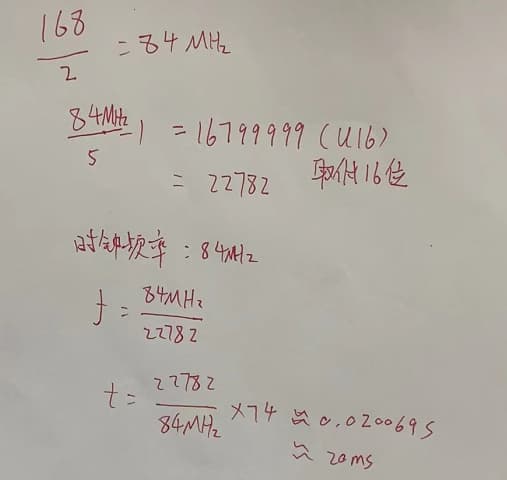 168/2 = 84MHz
84MHz/5 -1 = 16799999 (U16)
= 22782 取低16位
时钟频率:84MHz
f = 84MHz/22782
t = 22782/84MHz ×74 ≈ 0.020069s
≈ 20ms